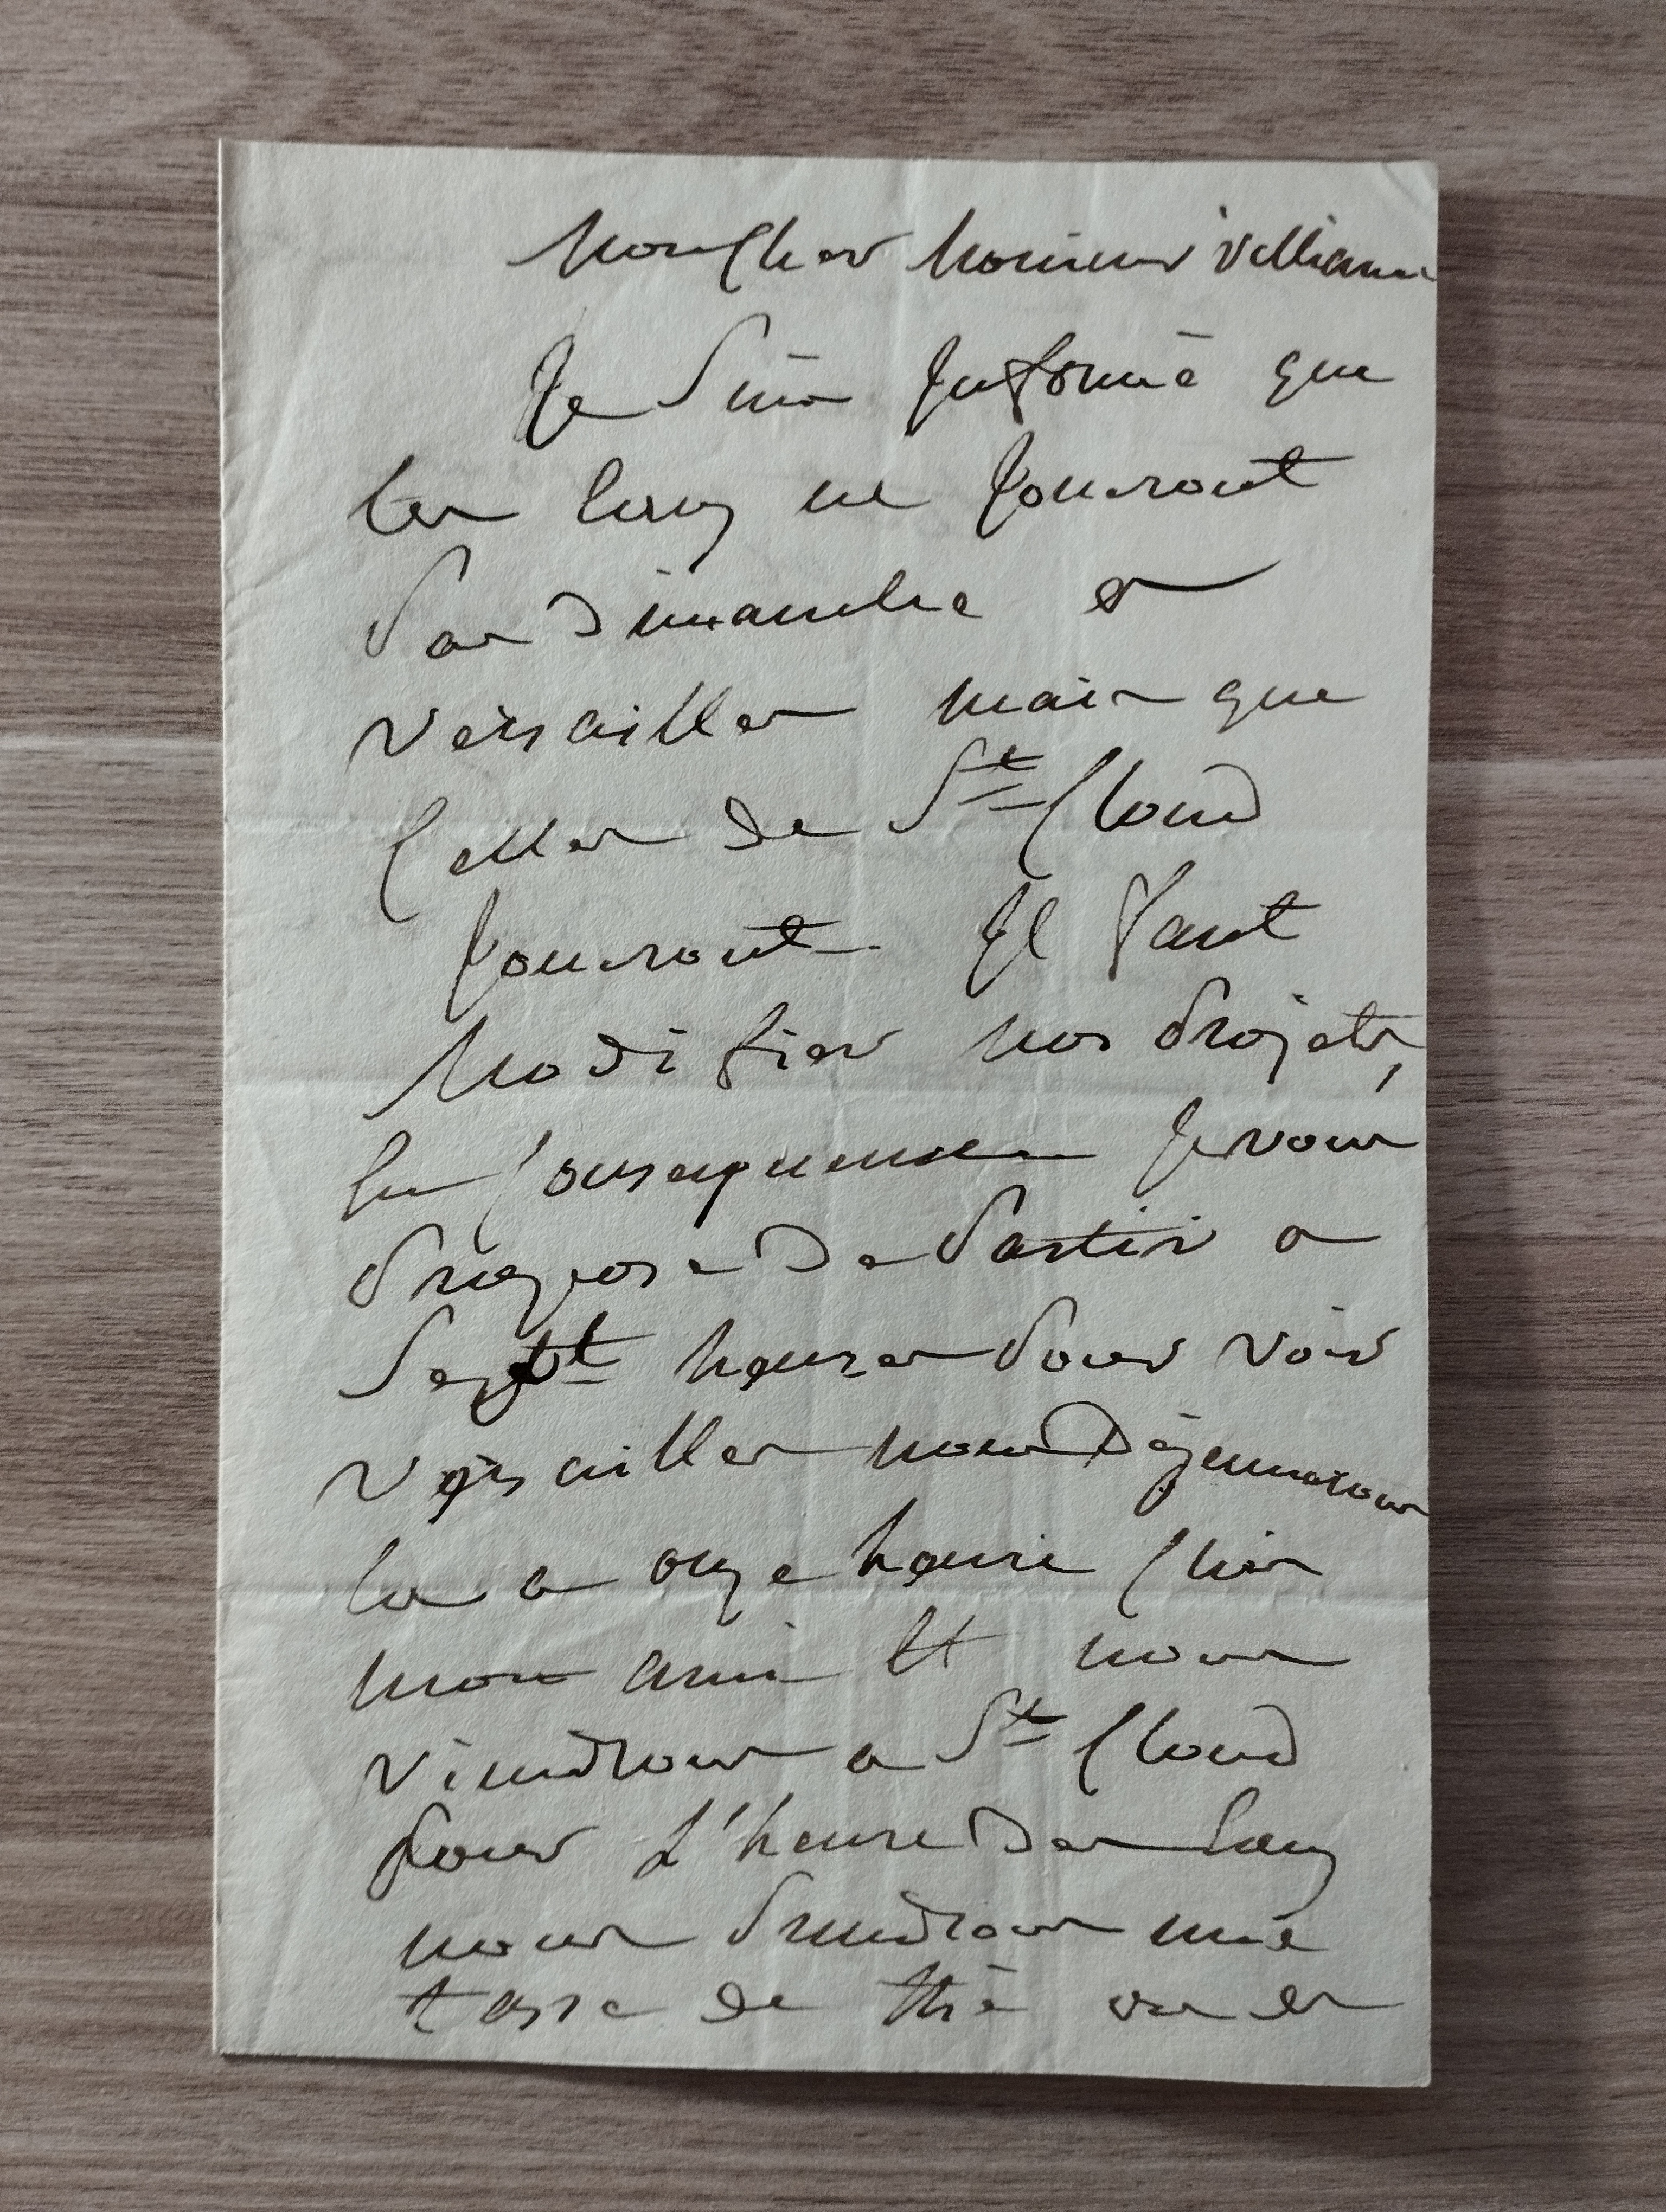 Mon Cher Monsieur Villiaume
Je suis Informé que
les Eaux ne Joueront
Pas Dimanche a
Versailles mais que
Celles de St Cloud
Joueront Il Faut
Modifier nos Projets,
En Consequence Je vous
Propose De Partir a
Sept heures Pour voir
Versailles nous Déjeunerons
la a onze heure Chés
mon ami Et nous
viendrons a St Cloud
Pour L'heure Des Eaux
nous Prendrons une
tasse de thé